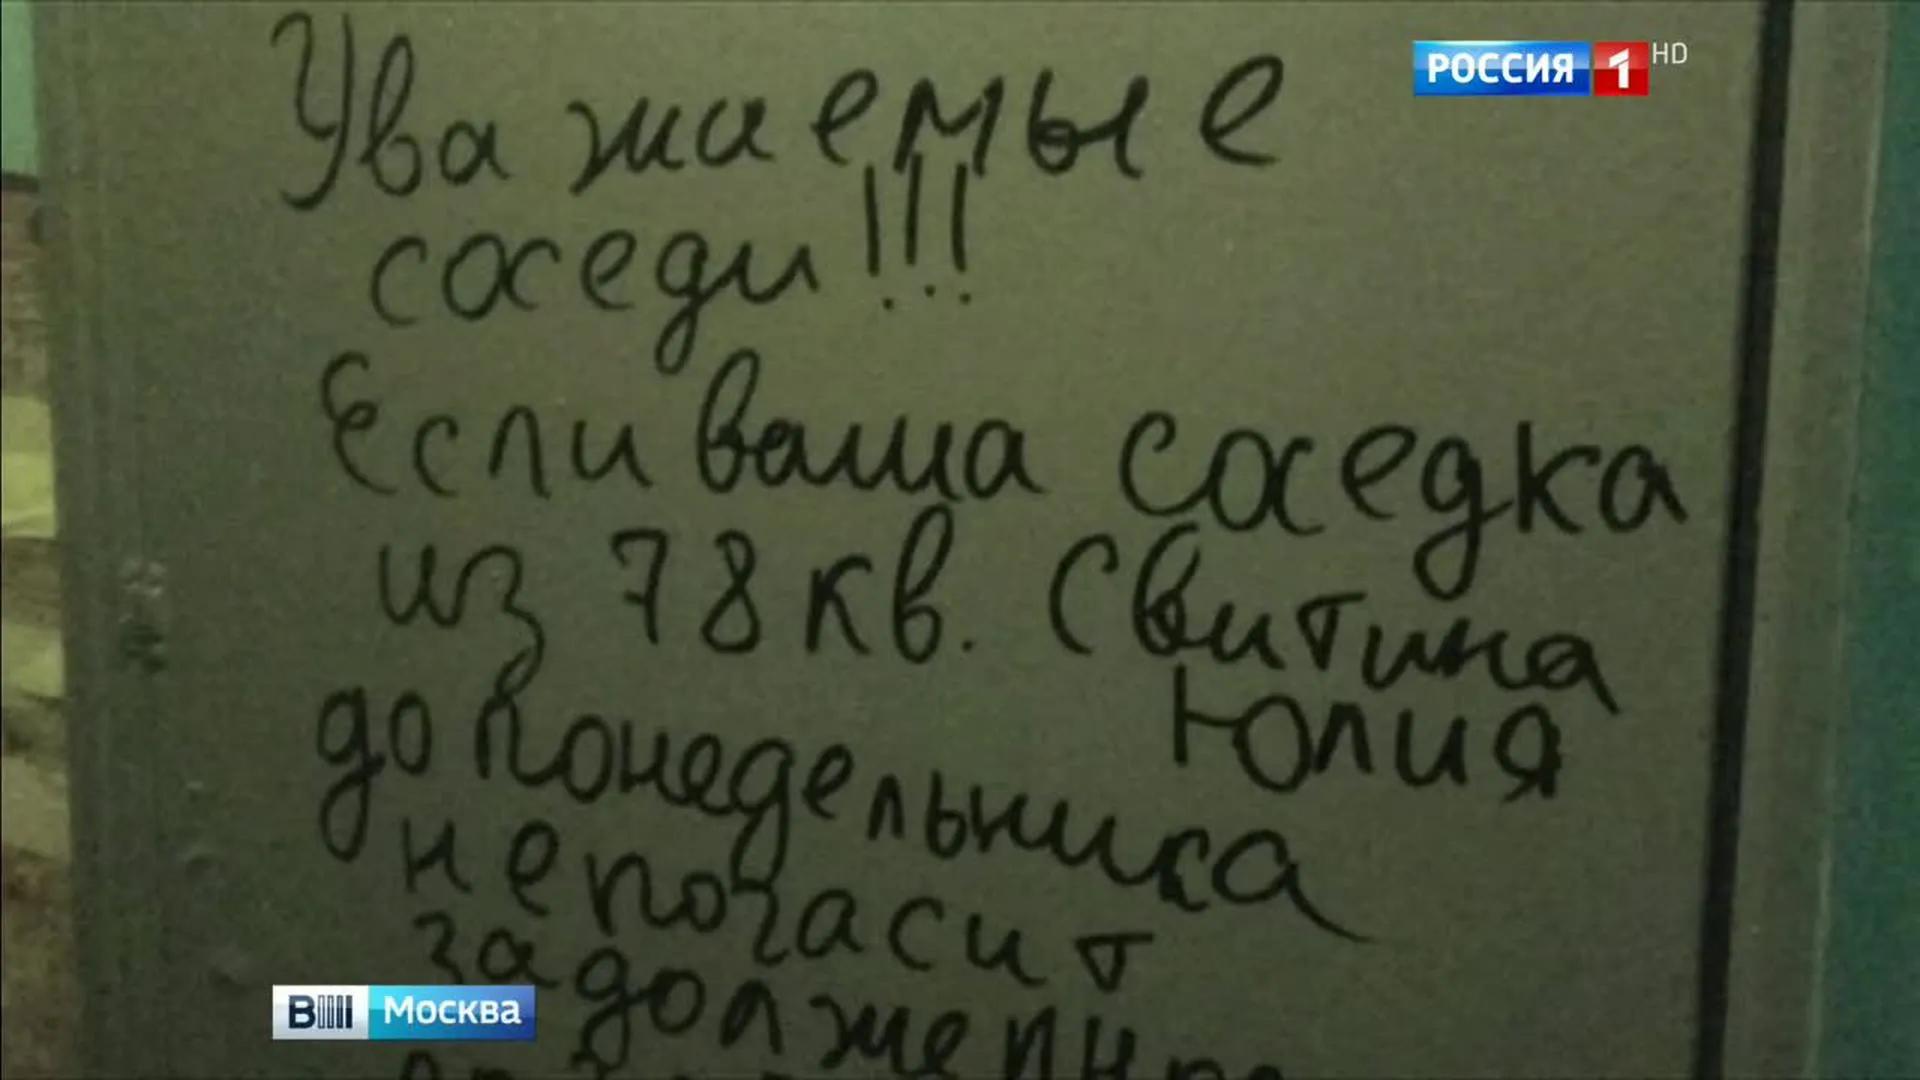 РОССИЯ 1 HD
Уважаемые
соседи!!!
Если ваша соседка
из 78 кв. Свитина
Юлия
до понедельника
не погасит
ВЕСТИ Москва